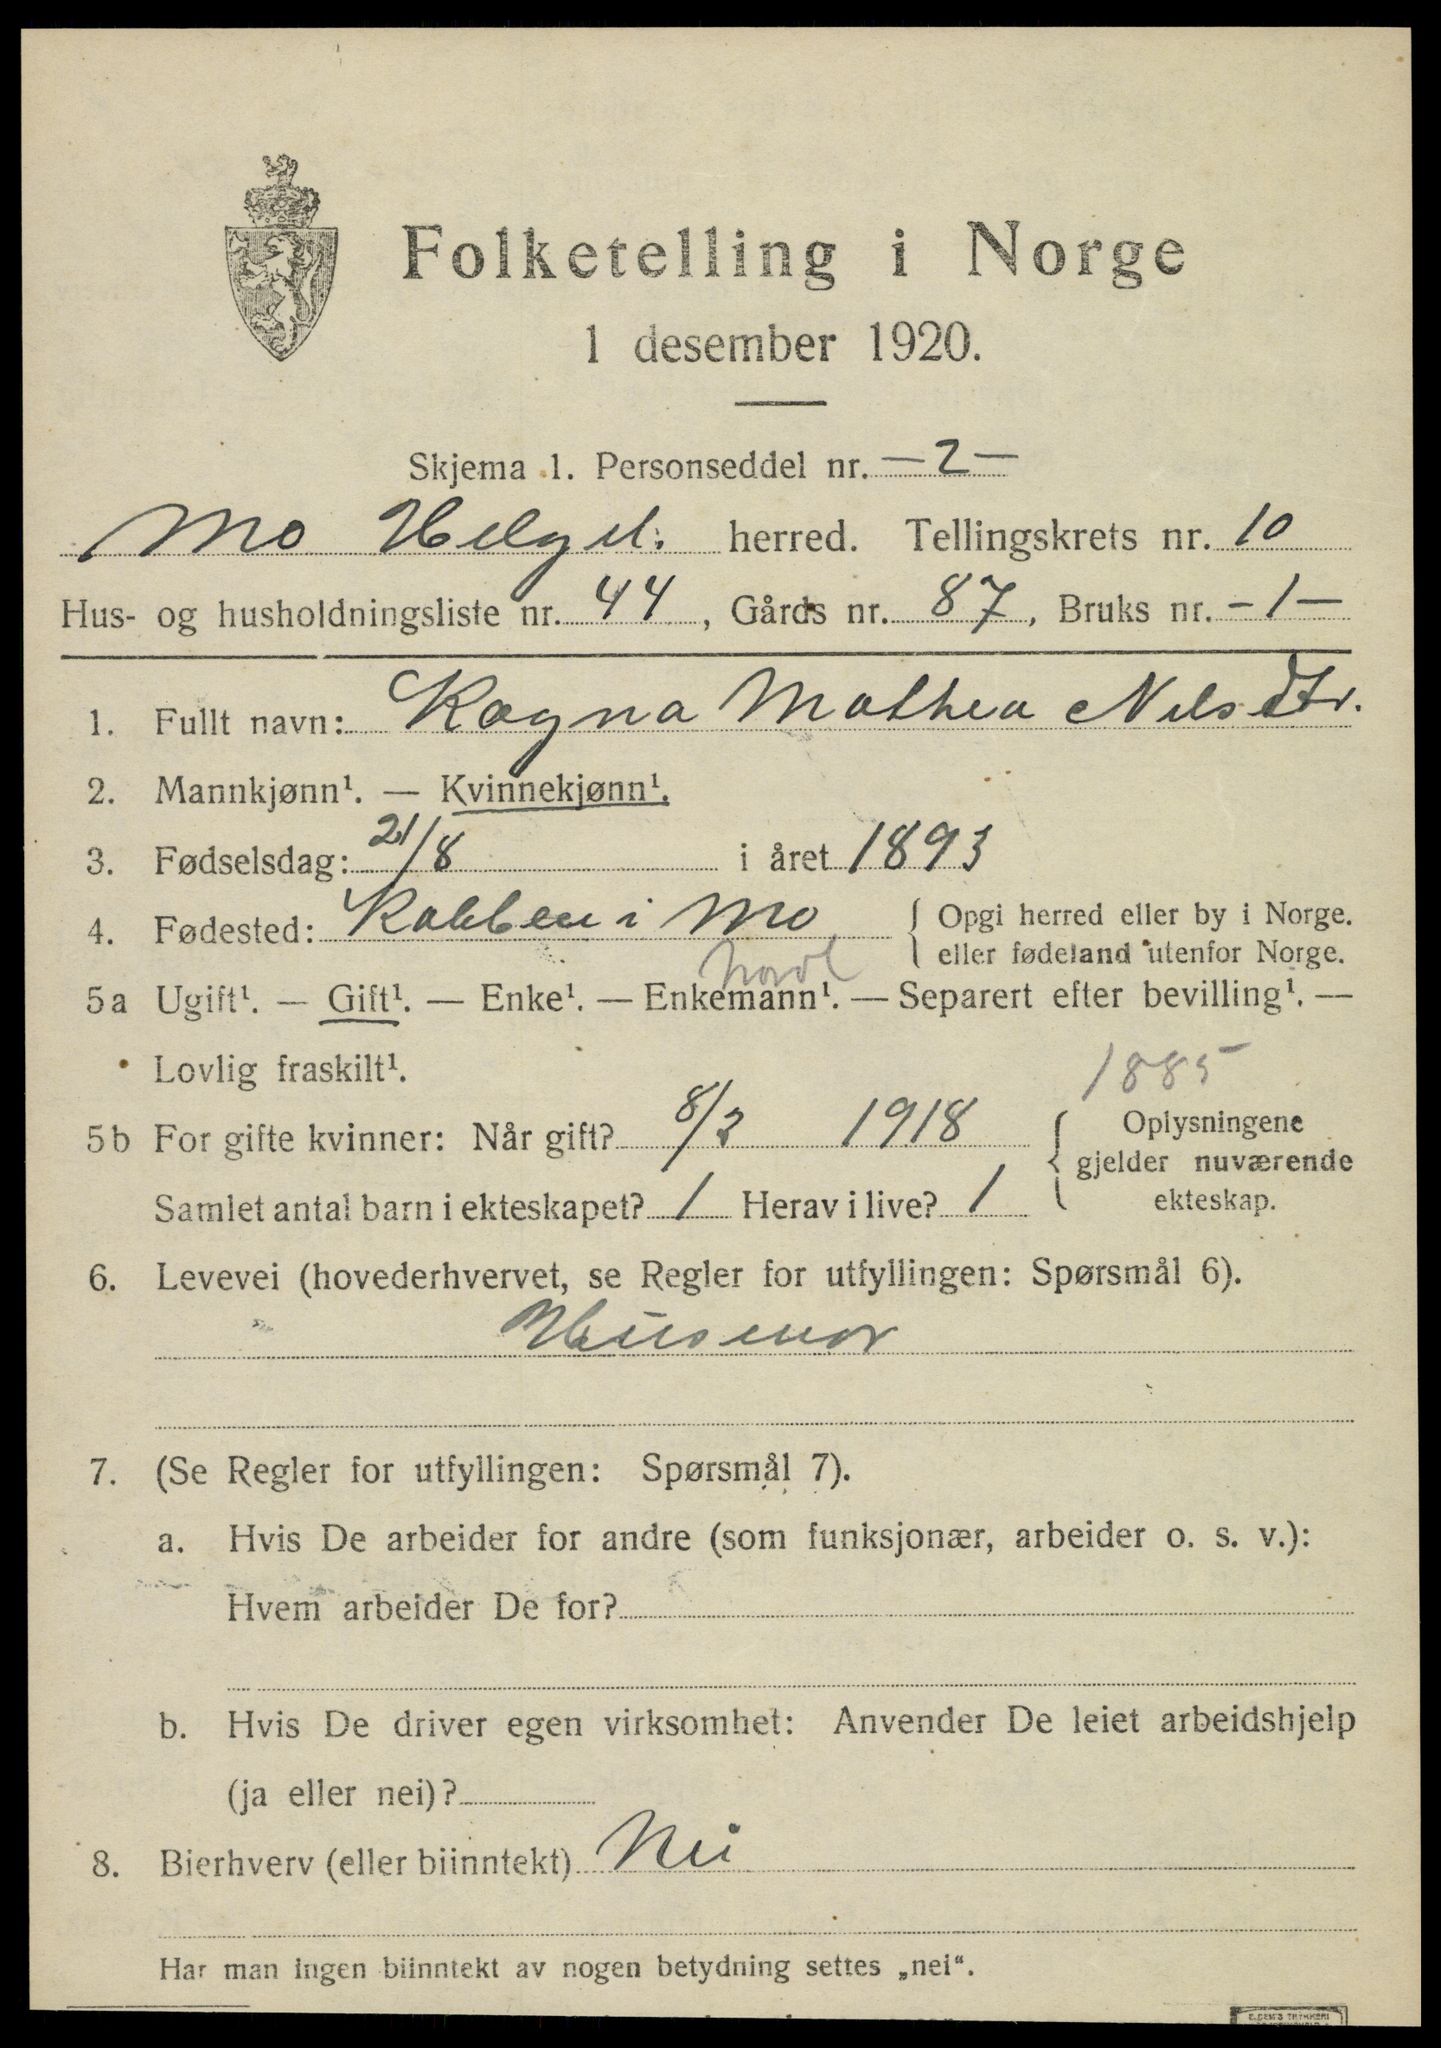 Folketelling i Norge
1 desember 1920.
Skjema 1. Personseddel nr. —2—
Mo Helgel. herred. Tellingskrets nr. 10
Hus- og husholdningsliste nr. 44, Gårds nr. 87, Bruks nr. -1-
1. Fullt navn: Ragna Mathea Nilsdtr.
2. Mannkjønn¹. — Kvinnekjønn¹.
3. Fødselsdag: 21/8 i året 1893
4. Fødested: i Mo { Opgi herred eller by i Norge.
eller fødeland utenfor Norge.
Nordl
5a Ugift¹. — Gift¹. — Enke¹. — Enkemann¹. — Separert efter bevilling¹. —
Lovlig fraskilt¹.
1885
5b For gifte kvinner: Når gift? 8/3 1918 { Oplysningene
gjelder nuværende
Samlet antal barn i ekteskapet? 1 Herav i live? 1 ekteskap.
6. Levevei (hovederhvervet, se Regler for utfyllingen: Spørsmål 6).
Husmor
7. (Se Regler for utfyllingen: Spørsmål 7).
a. Hvis De arbeider for andre (som funksjonær, arbeider o. s. v.):
Hvem arbeider De for?
b. Hvis De driver egen virksomhet: Anvender De leiet arbeidshjelp
(ja eller nei)?
8. Bierhverv (eller biinntekt) Nei
Har man ingen biinntekt av nogen betydning settes „nei“.